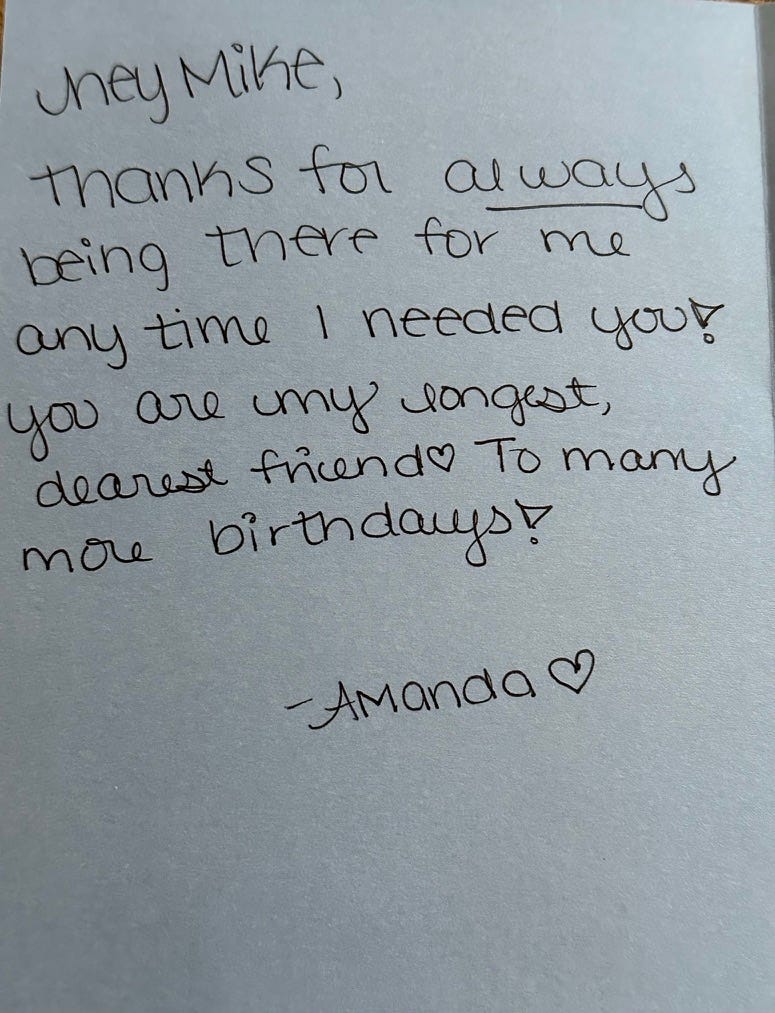 Hey Mike,
Thanks for always
being there for me
any time I needed you!
you are my longest,
dearest friend♡ To many
more birthdays!
-Amanda ♡